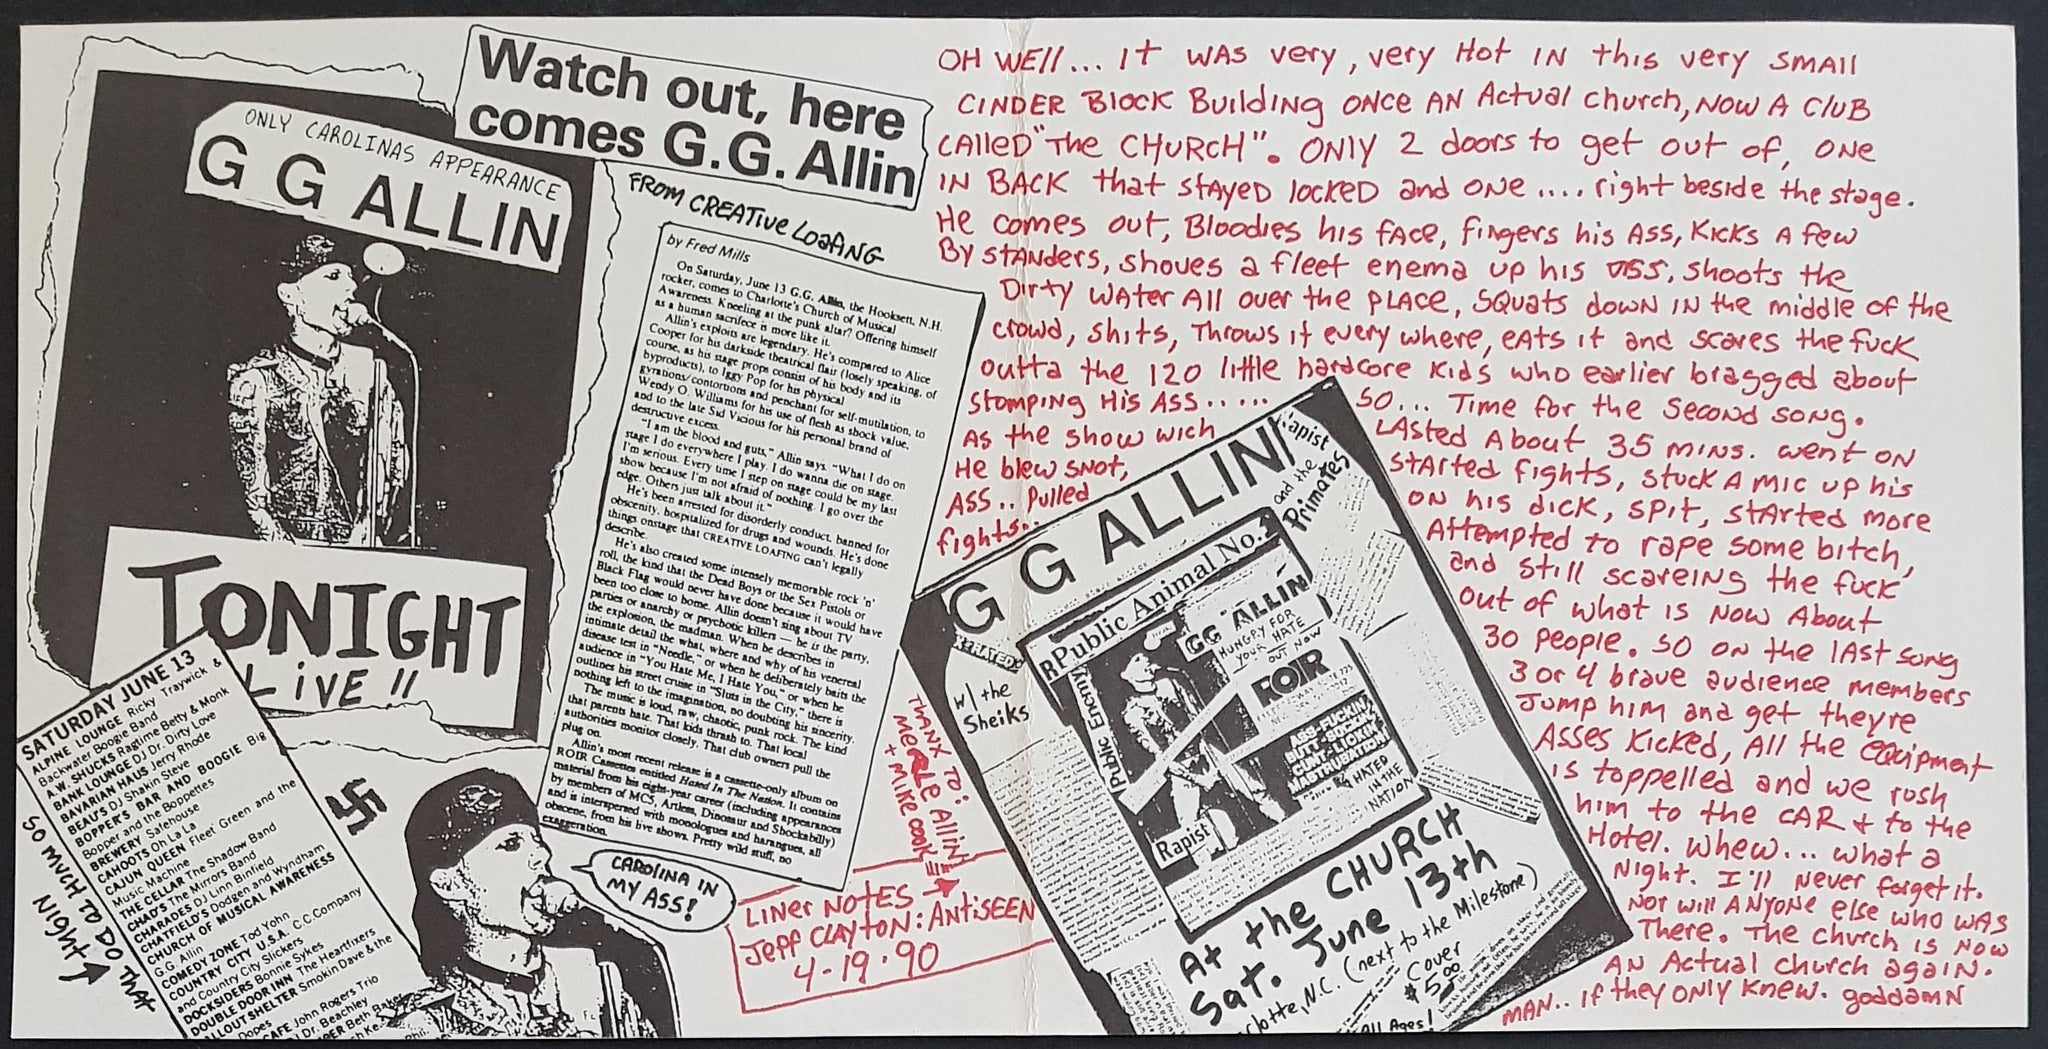 Watch out, here
comes G.G. Allin
ONLY CAROLINAS APPEARANCE
G G ALLIN
TONIGHT
LiVE !!
FROM CREATIVE LOAFING
by Fred Mills
On Saturday, June 13 G.G. Allin, the Hooksett, N.H.
rocker, comes to Charlotte's Church of Musical
Awareness. Kneeling at the punk altar? Offering himself
as a human sacrifece is more like it.
Allin's exploits are legendary. He's compared to Alice
Cooper for his darkside theatrical flair (losely speaking, of
course, as his stage props consist of his body and its
byproducts), to Iggy Pop for his physical
gyrations/contortions and penchant for self-mutilation, to
Wendy O. Williams for his use of flesh as shock value,
and to the late Sid Vicious for his personal brand of
destructive excess.
"I am the blood and guts," Allin says. "What I do on
stage I do everywhere I play. I do wanna die on stage.
I'm serious. Every time I step on stage could be my last
show because I'm not afraid of nothing. I go over the
edge. Others just talk about it."
He's been arrested for disorderly conduct, banned for
obscenity, hospitalized for drugs and wounds. He's done
things onstage that CREATIVE LOAFING can't legally
describe.
He's also created some intensely memorable rock 'n'
roll, the kind that the Dead Boys or the Sex Pistols or
Black Flag would never have done because it would have
been too close to home. Allin doesn't sing about TV
parties or anarchy or psychotic killers — he is the party,
the explosion, the madman. When he describes in
intimate detail the what, where and why of his venereal
disease test in "Needle," or when he deliberately baits the
audience in "You Hate Me, I Hate You," or when he
outlines his street cruise in "Sluts in the City," there is
nothing left to the imagination, no doubting his sincerity.
The music is loud, raw, chaotic, punk rock. The kind
that parents hate. That kids thrash to. That local
authorities monitor closely. That club owners pull the
plug on.
Allin's most recent release is a cassette-only album on
ROIR Cassettes entitled Hated In The Nation. It contains
material from his eight-year career (including appearances
by members of MC5, Artless, Dinosaur and Shockabilly)
and is interspersed with monologues and harangues, all
obscene, from his live shows. Pretty wild stuff, no
exaggeration.
SATURDAY JUNE 13
ALPINE LOUNGE Ricky Traywick &
Backwater Boogie Band
A.W. SHUCKS Ragtime Betty & Monk
BANK LOUNGE DJ Dr. Dirty Love
BAVARIAN HAUS Jerry Rhode
BEAU'S DJ Shakin Steve
BOPPER'S BAR AND BOOGIE Big
Bopper and the Boppettes
BREWERY Safehouse
CAHOOTS Oh La La
CAJUN QUEEN Fleet Green and the
Music Machine
THE CELLAR The Shadow Band
CHAD'S The Mirrors Band
CHARADES DJ Linn Binfield
CHATFIELD'S Dodgen and Wyndham
CHURCH OF MUSICAL AWARENESS
G.G. Allin
COMEDY ZONE Tod Yohn
COUNTRY CITY U.S.A. C.C.Company
and Country City Slickers
DOCKSIDERS Bonnie Sykes
DOUBLE DOOR INN The Heartfixers
ALLOUT SHELTER Smokin Dave & the
Dopes
CAFE John Rogers Trio
DJ Dr. Beachley
Beth Baker
SO MUCH TO DO THAT
NIGHT
CAROLINA IN
MY ASS!
THANX TO:
MERLE ALLIN
+ MIKE COOK
LINER NOTES
JEFF CLAYTON: ANTiSEEN
4-19-90
OH WEll... It WAS very, very Hot IN this very SMAll
CINDER BlocK Building ONCE AN Actual church, NOW A CluB
CAlleD "The CHURCH". ONLY 2 doors to get out of, ONE
IN BACK that stAyed locKED and ONE .... right beside the stage.
He comes out, Bloodies his fAce, fingers his Ass, KicKs A few
By stANders, shoves a fleet enema up his Ass, shoots the
Dirty WAter All over the PLACE, SQuats down IN the middle of the
crowd, shits, Throws it every where, eAts it and scares the fucK
outta the 120 little hardcore Kids who earlier bragged about
Stomping His ASS.....
SO... Time for the Second song.
As the show wich
LAsted About 35 mins. went ON
He blew SNot,
stArted fights, stucK A mic up his
ASS.. pulled
ON his dicK, spit, stArted more
fights..
Attempted to rape some bitch,
and still scareing the fucK
out of what is NOW About
30 people. SO on the lAst song
3 or 4 brave audience members
Jump him and get theyre
Asses Kicked, All the equipment
is toppelled and we rush
him to the CAR + to the
Hotel. whew... what a
Night. I'll Never forget it.
Nor will ANyone else who WAS
There. The church is Now
AN Actual church again.
MAN.. if they ONly Knew. goddamN
G G ALLIN/
Rapist
and the
Primates
w/ the
Sheiks
Public Animal No.1
Public Enemy
GG ALLIN
HUNGRY FOR
YOUR HATE
OUT NOW
ROIR
ASS-FUCKIN
BUTT-SUCKIN
CUNT-LICKIN
MASTRUBATION!
HATED
IN THE
NATION
Rapist
At the CHURCH
Sat. June 13th
(next to the Milestone)
rlotte, N.C.
Cover
$5.00
All Ages!